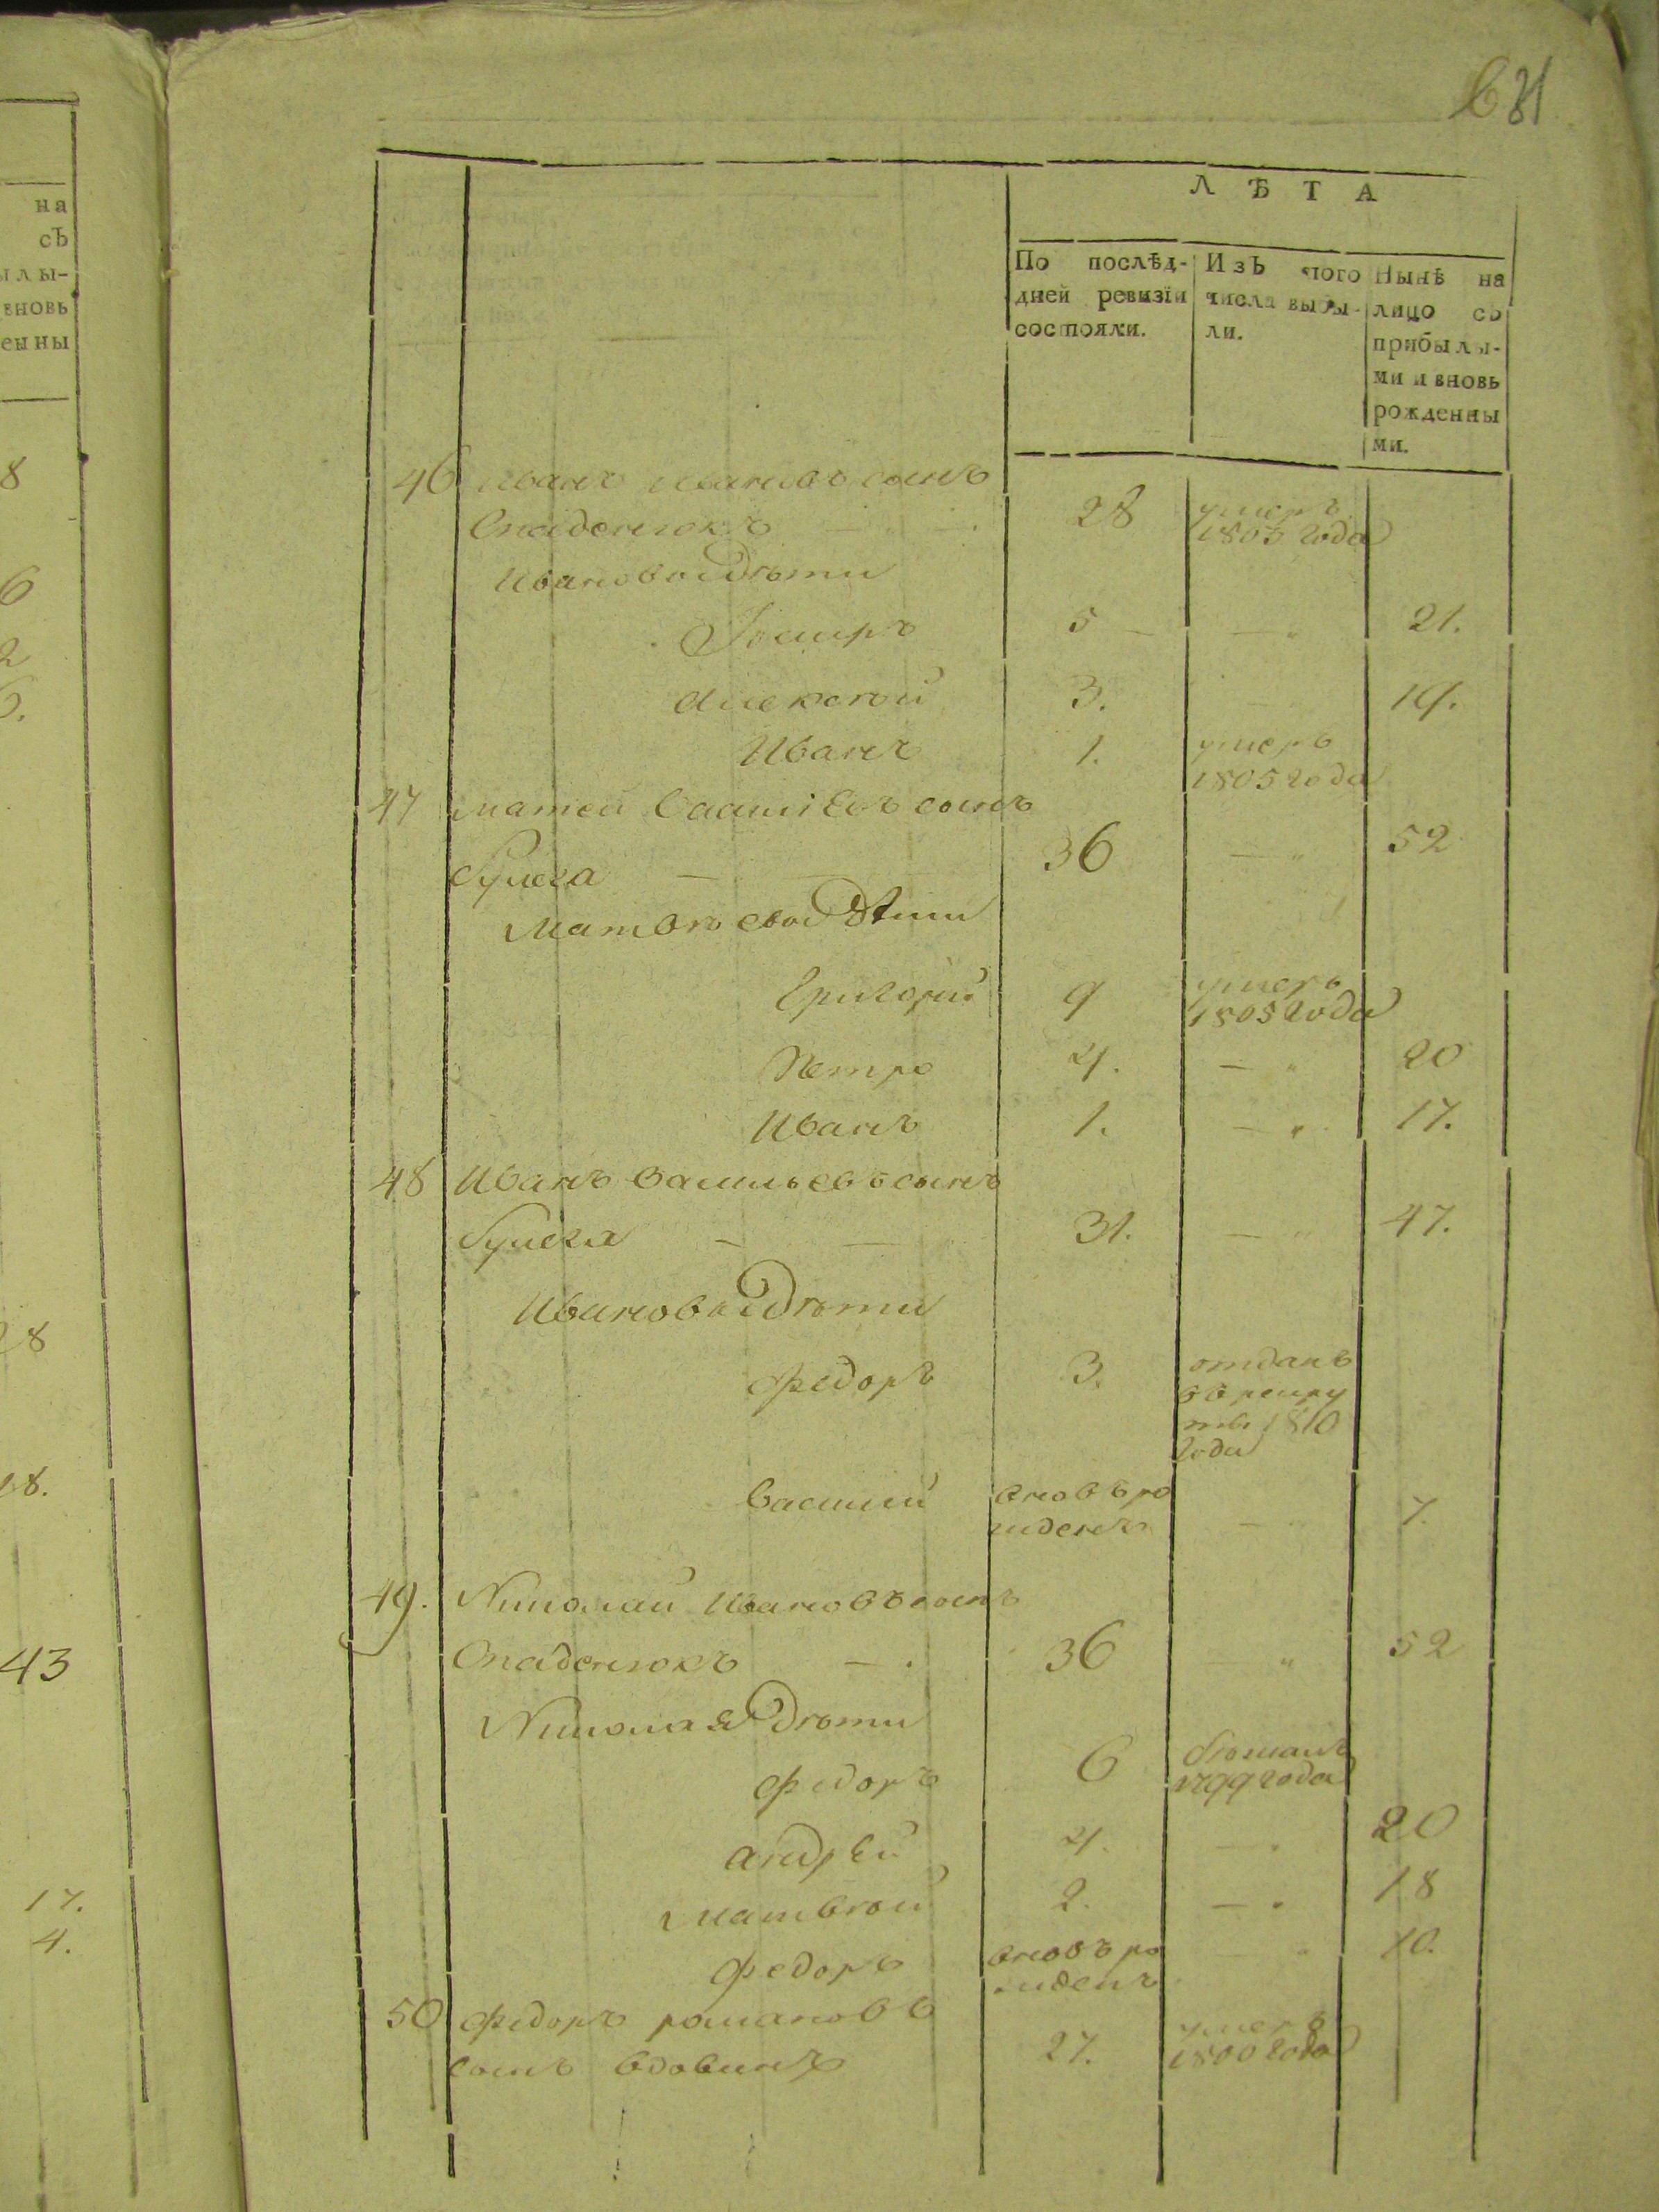 на
съ
ылы-
вновь
енны
8
6
2
28
43
17.
4.
Л Ѣ Т А
По послѣд-
дней ревизїи
состояли.
Изъ того
числа выбы-
ли.
Нынѣ на
лицо съ
прибылы-
ми и вновь
рожденны
ми.
46 Иванъ Ивановъ сынъ
28 умеръ
1803 года
Ивановы дѣти
5 — 21.
Алексѣй 3. 19.
Иванъ 1. умеръ
1805 года
47 матвей Василіевъ сынъ
36 — 52
Матвѣевы дѣти
Григорий 9 умеръ
1805 года
Петръ 4. — 20
Иванъ 1. — 17.
48 Иванъ Васильевъ сынъ
31. — 47.
Ивановы дѣти
Федоръ 3. отданъ
въ рекру
ты 1810
года
Василий вновь ро
жденъ — 7.
49. Николай Ивановъ сынъ
36 — 52
Николая дѣти
Федоръ 6
1799 года
Андрей 4. — 20
Матвѣй 2. — 18
Федоръ вновь ро
жденъ — 10.
50 Федоръ романовъ
сынъ вдовинъ 27. умеръ
1800 года